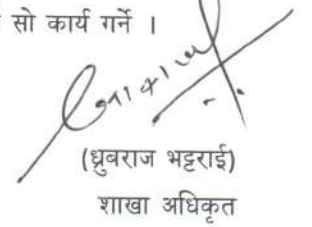 सो कार्य गर्ने ।
(ध्रुबराज भट्टराई)
शाखा अधिकृत